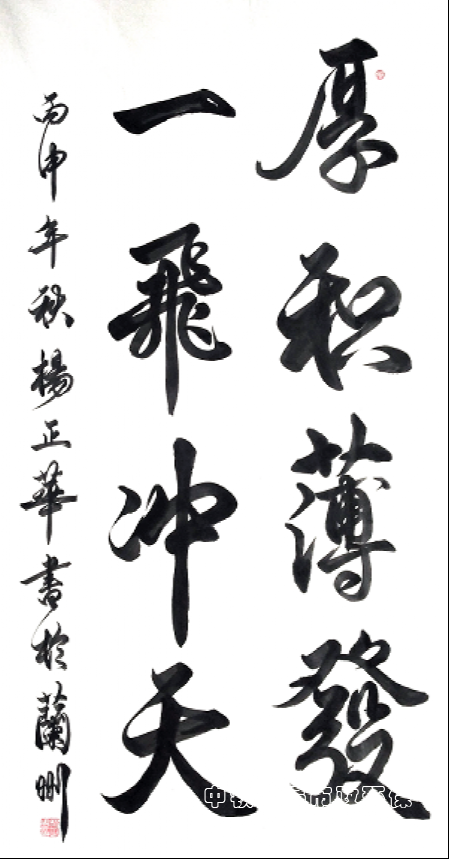 厚积薄發
一飛冲天
丙申年秋楊正華書於蘭州